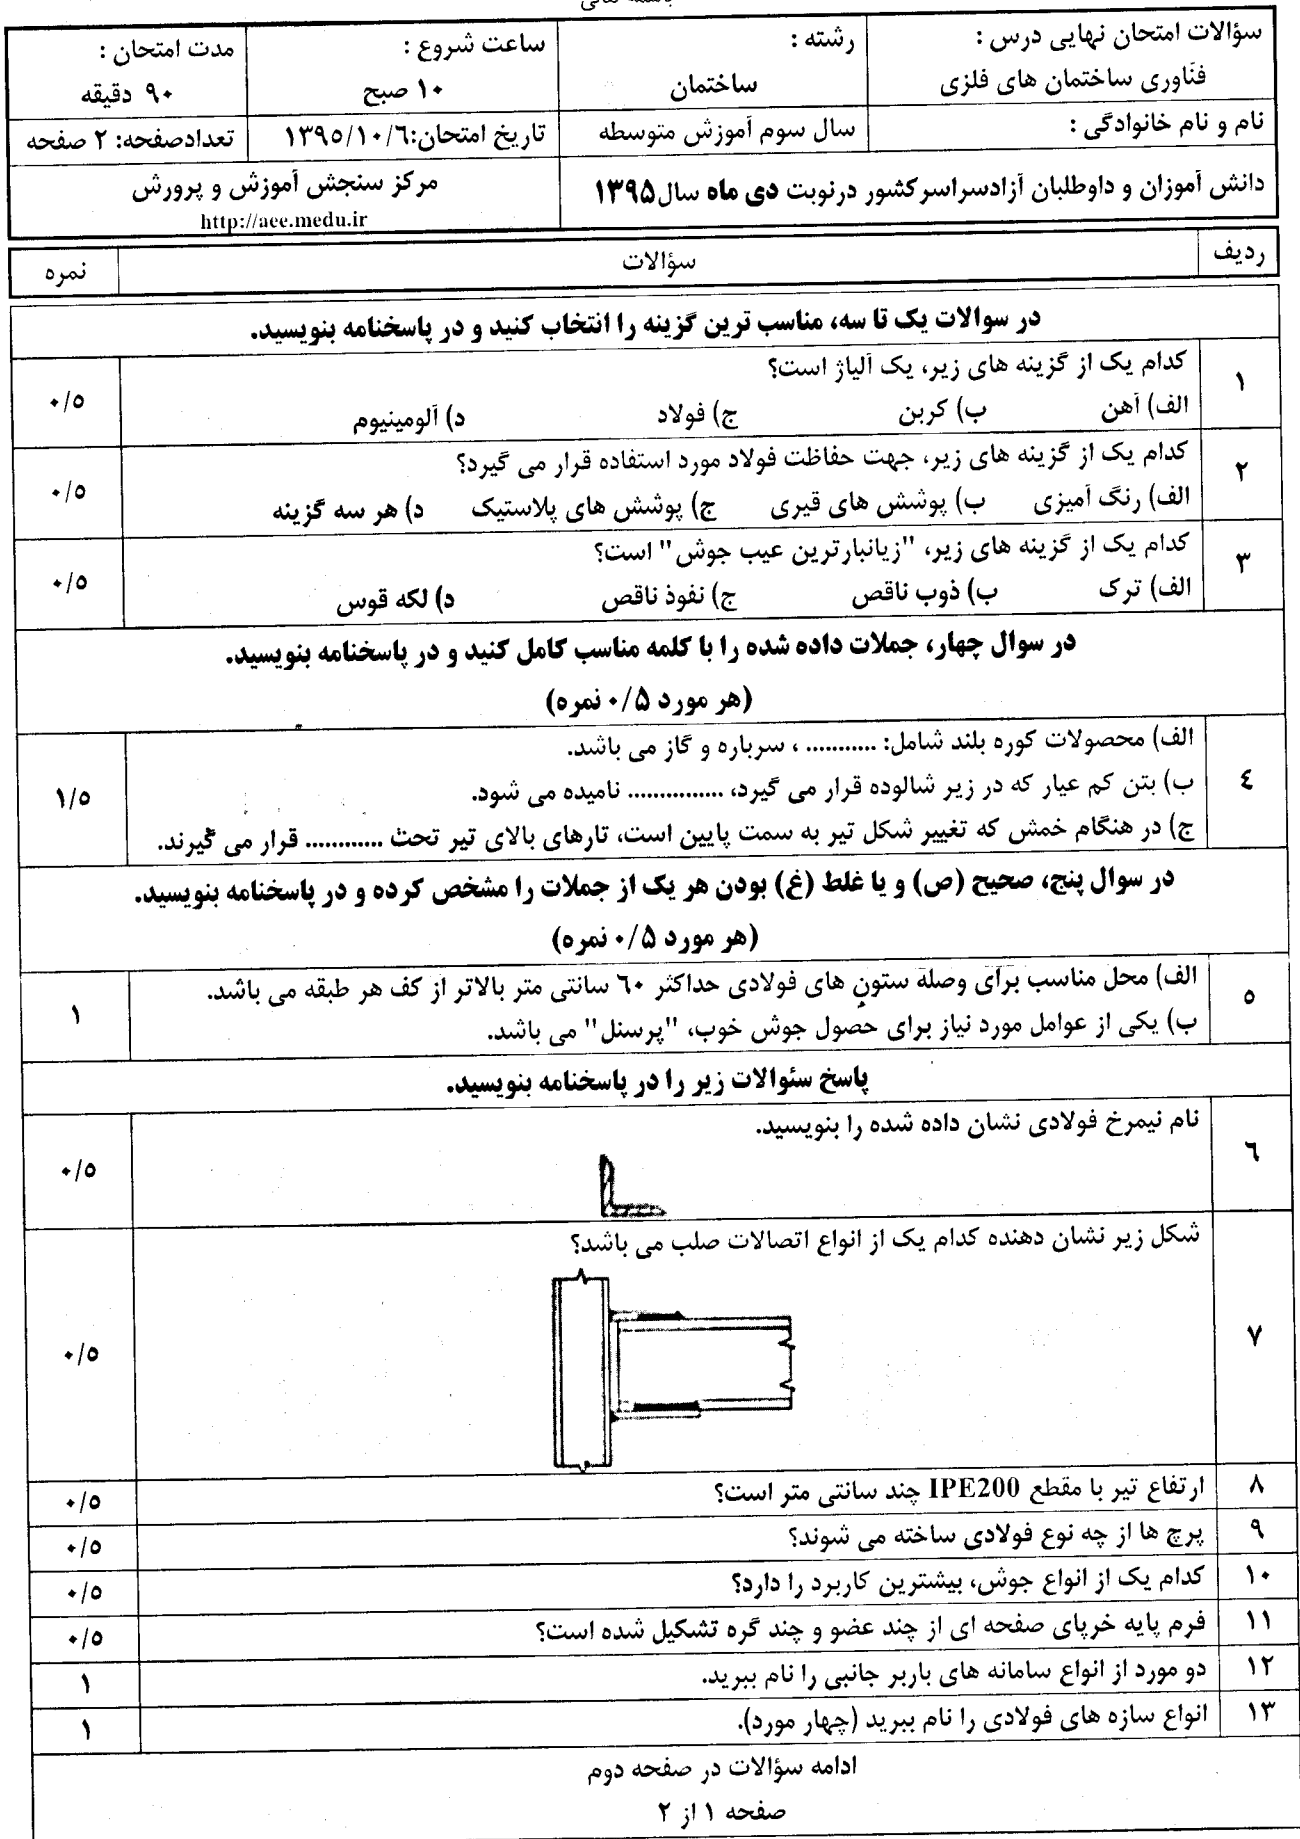 باسمه تعالی
سؤالات امتحان نهایی درس :
فنّاوری ساختمان های فلزی
رشته :
ساختمان
ساعت شروع :
۱۰ صبح
مدت امتحان :
۹۰ دقیقه
نام و نام خانوادگی :
سال سوم آموزش متوسطه
تاریخ امتحان:۱۳۹۵/۱۰/٦
تعدادصفحه: ۲ صفحه
دانش آموزان و داوطلبان آزادسراسرکشور درنوبت دی ماه سال۱۳۹۵
مرکز سنجش آموزش و پرورش
http://aee.medu.ir
ردیف
سؤالات
نمره
در سوالات یک تا سه، مناسب ترین گزینه را انتخاب کنید و در پاسخنامه بنویسید.
۱
کدام یک از گزینه های زیر، یک آلیاژ است؟
الف) آهن ب) کربن ج) فولاد د) آلومینیوم
۰/۵
۲
کدام یک از گزینه های زیر، جهت حفاظت فولاد مورد استفاده قرار می گیرد؟
الف) رنگ آمیزی ب) پوشش های قیری ج) پوشش های پلاستیک د) هر سه گزینه
۰/۵
۳
کدام یک از گزینه های زیر، "زیانبارترین عیب جوش" است؟
الف) ترک ب) ذوب ناقص ج) نفوذ ناقص د) لکه قوس
۰/۵
در سوال چهار، جملات داده شده را با کلمه مناسب کامل کنید و در پاسخنامه بنویسید.
(هر مورد ۰/۵ نمره)
٤
الف) محصولات کوره بلند شامل: ........... ، سرباره و گاز می باشد.
ب) بتن کم عیار که در زیر شالوده قرار می گیرد، ............... نامیده می شود.
ج) در هنگام خمش که تغییر شکل تیر به سمت پایین است، تارهای بالای تیر تحت ............ قرار می گیرند.
۱/۵
در سوال پنج، صحیح (ص) و یا غلط (غ) بودن هر یک از جملات را مشخص کرده و در پاسخنامه بنویسید.
(هر مورد ۰/۵ نمره)
۵
الف) محل مناسب برای وصله ستون های فولادی حداکثر ٦۰ سانتی متر بالاتر از کف هر طبقه می باشد.
ب) یکی از عوامل مورد نیاز برای حصول جوش خوب، "پرسنل" می باشد.
۱
پاسخ سئوالات زیر را در پاسخنامه بنویسید.
٦
نام نیمرخ فولادی نشان داده شده را بنویسید.
۰/۵
۷
شکل زیر نشان دهنده کدام یک از انواع اتصالات صلب می باشد؟
۰/۵
۸
ارتفاع تیر با مقطع IPE200 چند سانتی متر است؟
۰/۵
۹
پرچ ها از چه نوع فولادی ساخته می شوند؟
۰/۵
۱۰
کدام یک از انواع جوش، بیشترین کاربرد را دارد؟
۰/۵
۱۱
فرم پایه خرپای صفحه ای از چند عضو و چند گره تشکیل شده است؟
۰/۵
۱۲
دو مورد از انواع سامانه های باربر جانبی را نام ببرید.
۱
۱۳
انواع سازه های فولادی را نام ببرید (چهار مورد).
۱
ادامه سؤالات در صفحه دوم
صفحه ۱ از ۲